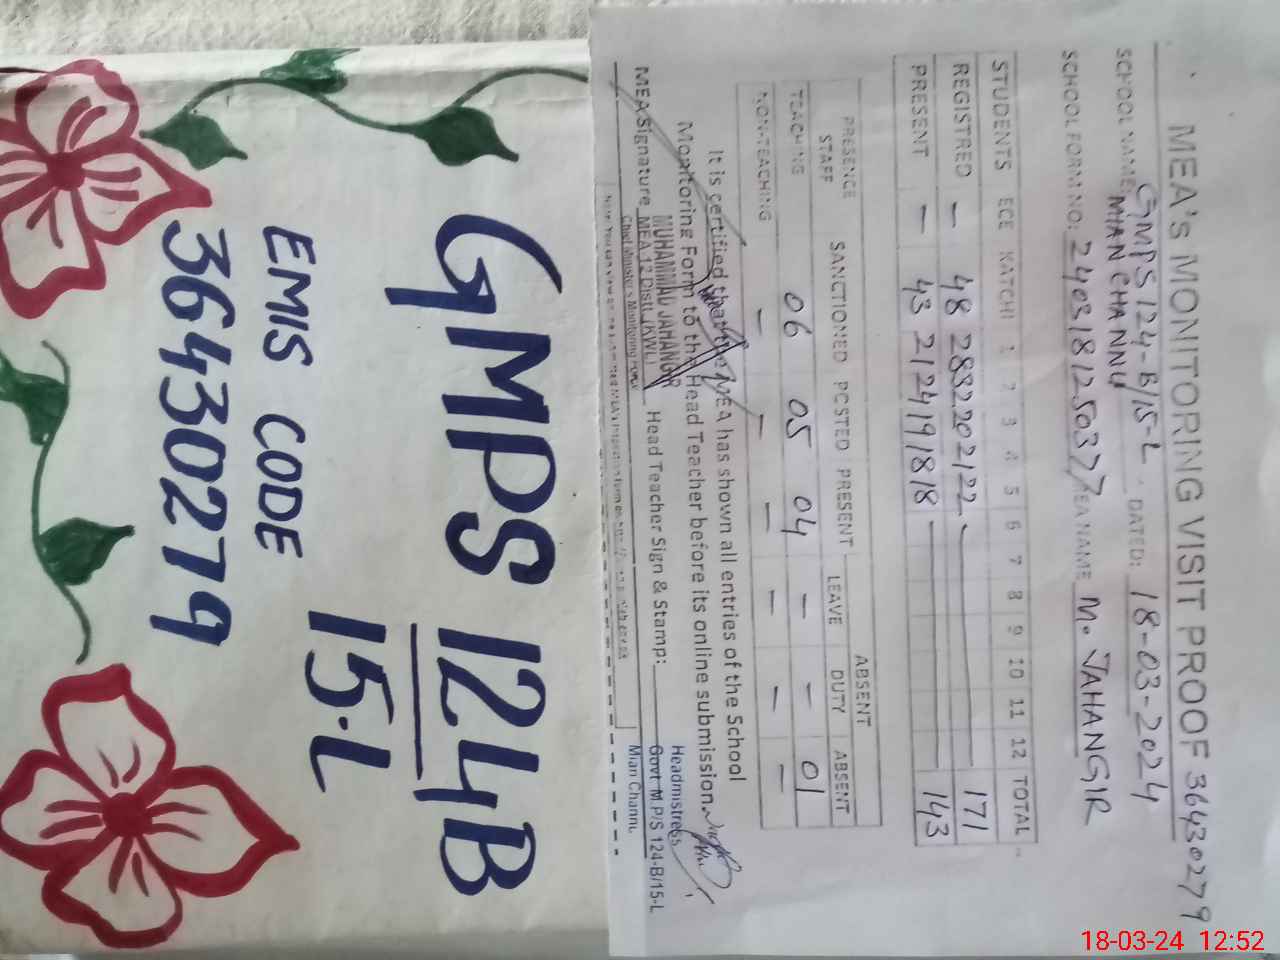 MEA's MONITORING VISIT PROOF 36430279
SCHOOL NAME: GMPS 124-B/15-L DATED: 18-03-2024
MIAN CHANNU
SCHOOL FORM NO: 2403181250377 MEA NAME M. JAHANGIR
STUDENTS ECE KATCHI 1 2 3 4 5 6 7 8 9 10 11 12 TOTAL
REGISTRED - 48 28 32 20 21 22 171
PRESENT - 43 21 24 19 18 18 143
PRESENCE STAFF SANCTIONED POSTED PRESENT ABSENT
LEAVE DUTY ABSENT
TEACHING 06 05 04 - - 01
NON-TEACHING - - - - - -
It is certified that the MEA has shown all entries of the School
Monitoring Form to the Head Teacher before its online submission.
MUHAMMAD JAHANGIR
MEA Signature MEA 12 Distt. (KWL) Head Teacher Sign & Stamp:
Chief Minister's Monitoring Force
Headmistress
Govt M.P/S 124-B/15-L
Mian Channu.
GMPS 124B
15-L
EMIS CODE
36430279
18-03-24 12:52